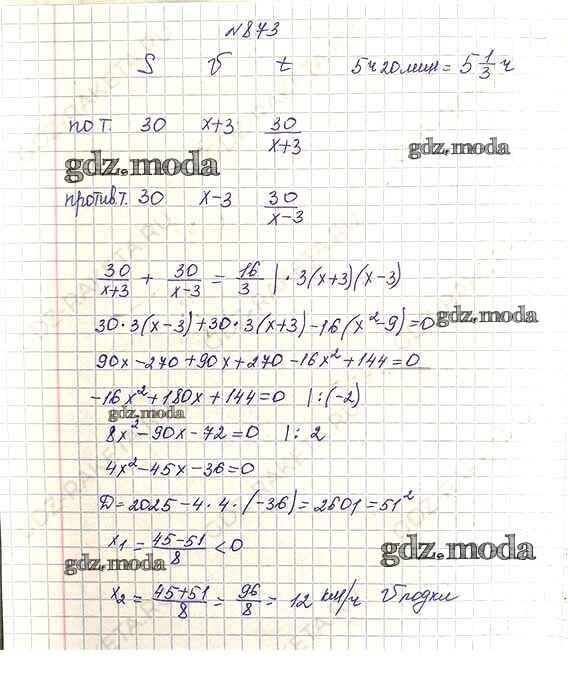 №873
S V t 5 ч 20 мин = 5 1/3 ч
по т. 30 x+3 30/(x+3)
gdz.moda gdz.moda
против т. 30 x-3 30/(x-3)
30/(x+3) + 30/(x-3) = 16/3 |·3(x+3)(x-3)
30·3(x-3)+30·3(x+3)-16(x²-9)=0
gdz.moda
90x-270+90x+270-16x²+144=0
-16x²+180x+144=0 |:(-2)
gdz.moda
8x²-90x-72=0 |:2
4x²-45x-36=0
D=2025-4·4·(-36)=2601=51²
x₁=(45-51)/8<0
gdz.moda gdz.moda
x₂=(45+51)/8=96/8=12 км/ч V лодки